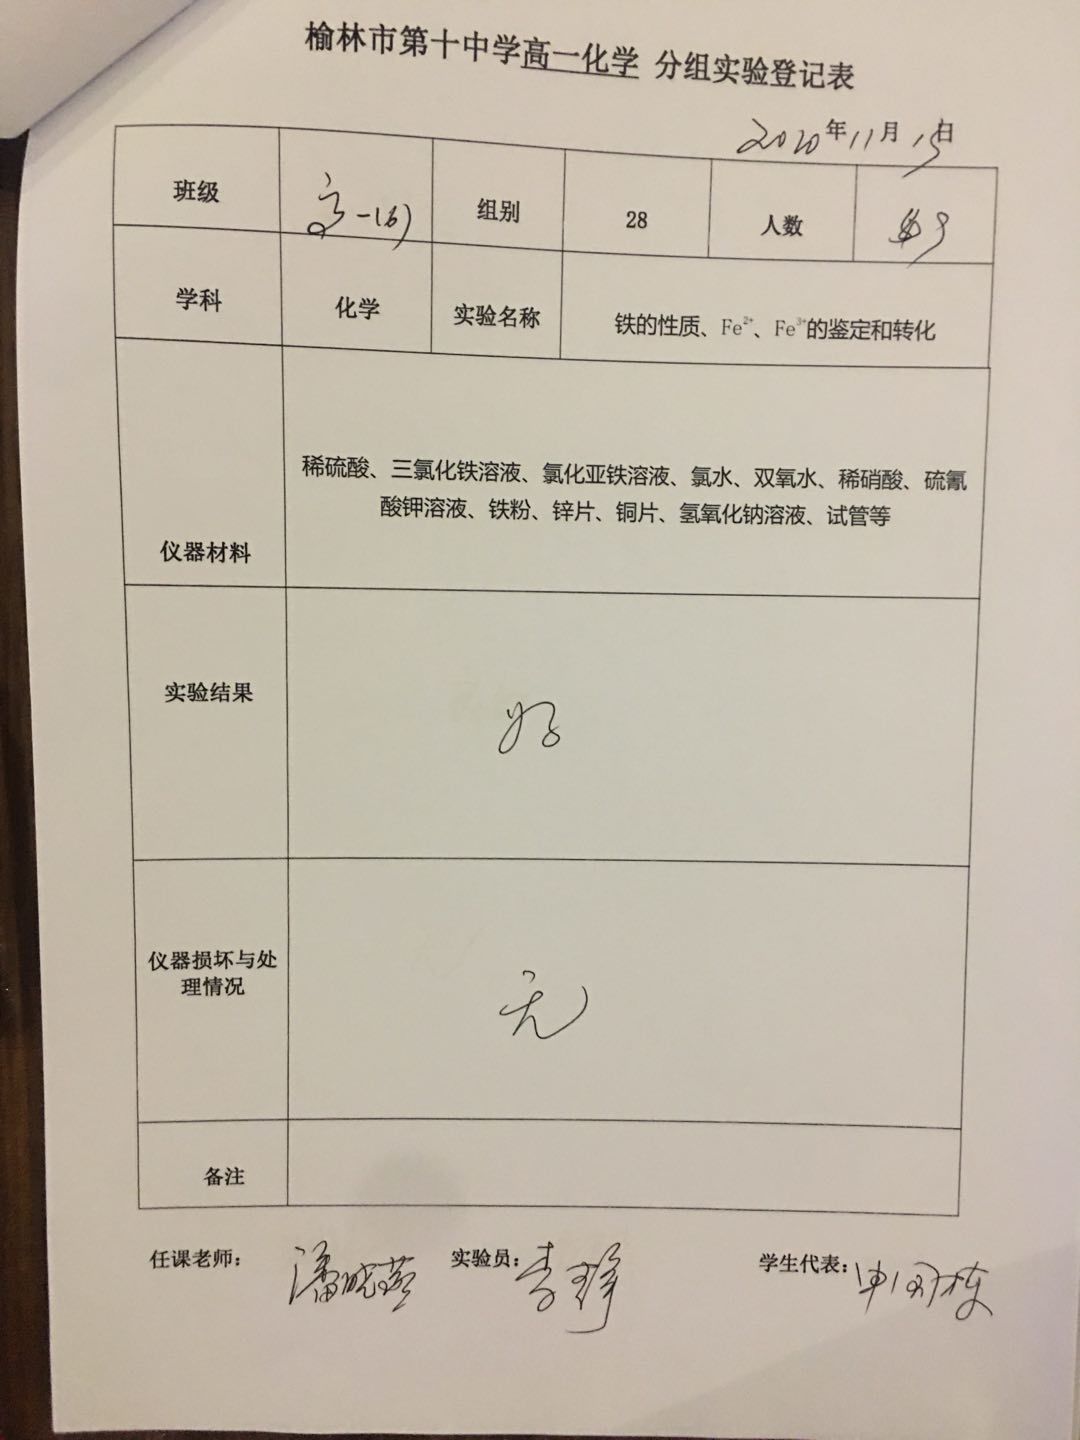 榆林市第十中学高一化学 分组实验登记表
2020年11月15日
班级 高一(6) 组别 28 人数
学科 化学 实验名称 铁的性质、Fe²⁺、Fe³⁺的鉴定和转化
稀硫酸、三氯化铁溶液、氯化亚铁溶液、氯水、双氧水、稀硝酸、硫氰
酸钾溶液、铁粉、锌片、铜片、氢氧化钠溶液、试管等
仪器材料
实验结果
好
仪器损坏与处
理情况
无
备注
任课老师：潘晓燕 实验员：李 学生代表：申国栋